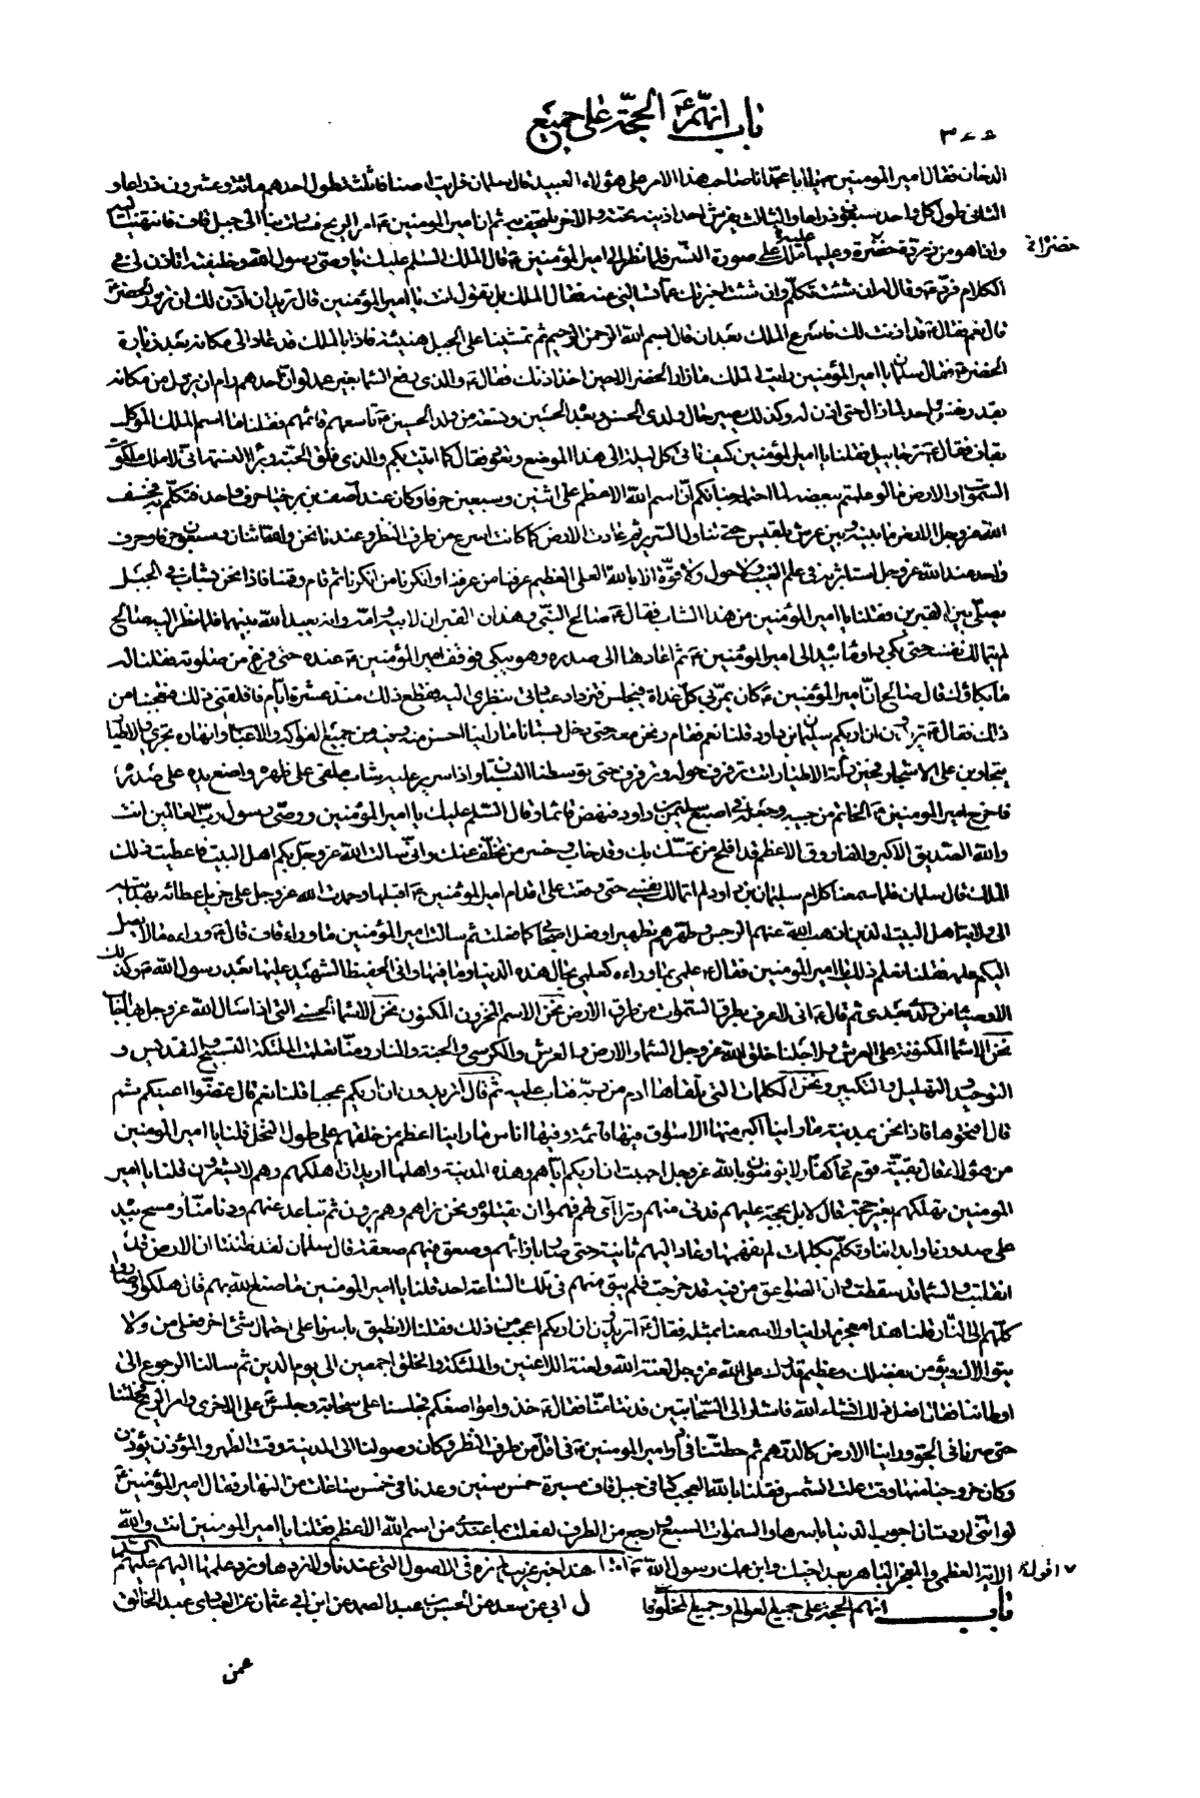 باب انهم ع الحجة على جميع
٣٠٠٥
الدخان فقال امير المؤمنين يا ابا محمد انا صاحب هذا الامر على هؤلاء العبيد قال سلمان فرايت اصنافا ثلثة طول احدهم مائة وعشرون ذراعا و
الثانى طول كل واحد سبعون ذراعا والثالث يفرش احد اذنيه تحته والاخرى يلتحف به ثم ان امير المؤمنين ع امر الريح فسارت بنا الى جبل قاف فانتهينا اليه
واذا هو من زمردة خضرة وعليها ملك على صورة النسر فلما نظر الى امير المؤمنين ع قال الملك السلم عليك يا وصى رسول الله وخليفته اتاذن لى فى
الكلام فرد ع وقال له ان شئت تكلم وان شئت اخبرتك عما تسالنى عنه فقال الملك بل تقول انت يا امير المؤمنين قال تريد ان آذن لك ان تزور الخضر ع
قال نعم فقال ع قد اذنت لك فاسرع الملك بعد ان قال بسم الله الرحمن الرحيم ثم تمشينا على الجبل هنيئة فاذا بالملك قد عاد الى مكانه بعد زيارة
الخضر ع فقال سلمان يا امير المؤمنين رايت الملك ما زار الخضر الا حين اخذ اذنك فقال ع والذى رفع السماء بغير عمد لو ان احدهم رام ان يزول من مكانه
بقدر نفس واحد لما زال حتى اذن له وكذلك يصير حال ولدى الحسن وبعده الحسين وتسعة من ولد الحسين ع تاسعهم قائمهم فقلنا ما اسم الملك الموكل
بقاف فقال ع ترجائيل فقلنا يا امير المؤمنين كيف تاتى كل ليلة الى هذا الموضع وتعود فقال كما اتيت بكم والذى فلق الحبة وبرأ النسمة انى لاملك ملكوت
السموات والارض ما لو علمتم ببعضه لما احتمله جنانكم ان اسم الله الاعظم على اثنين وسبعين حرفا وكان عند آصف بن برخيا حرف واحد فتكلم به فخسف
الله عز وجل الارض ما بينه وبين عرش بلقيس حتى تناول السرير ثم عادت الارض كما كانت اسرع من طرف النظر وعندنا نحن والله اثنان وسبعون حرفا وحرف
واحد عند الله عز وجل استاثر به فى علم الغيب ولا حول ولا قوة الا بالله العلى العظيم عرفنا من عرفنا وانكرنا من انكرنا ثم قام وقمنا فاذا نحن بشاب فى الجبل
يصلى بين القبرين فقلنا يا امير المؤمنين من هذا الشاب فقال ع صالح النبى وهذان القبران لابيه وامه وانه يعبد الله بينهما فلما نظر اليه صالح
لم يتمالك نفسه حتى بكى واوما بيده الى امير المؤمنين ع ثم اعادها الى صدره وهو يبكى فوقف امير المؤمنين ع عنده حتى فرغ من صلوته فقلنا له
ما بكاؤك قال صالح ان امير المؤمنين ع كان يمر بى كل غداة فيجلس فتزداد عبادتى بنظرى اليه فقطع ذلك منذ عشرة ايام فاقلقنى ذلك فتعجبنا من
ذلك فقال ع تريدون ان اريكم سليمان بن داود قلنا نعم فقام ونحن معه حتى دخل بستانا ما راينا احسن منه وفيه من جميع الفواكه والاعناب وانهاره تجرى والاطيار
يتجاوبن على الاشجار فحين راته الاطيار اتت ترفرف حوله وترفرف حتى توسطنا البستان واذا سرير عليه شاب ملقى على ظهره واضع يده على صدره
فاخرج امير المؤمنين ع الخاتم من جيبه وجعله فى اصبع سليمن بن داود فنهض قائما وقال السلم عليك يا امير المؤمنين ووصى رسول رب العالمين انت
والله الصديق الاكبر والفاروق الاعظم قد افلح من تمسك بك وقد خاب وخسر من تخلف عنك وانى سالت الله عز وجل بكم اهل البيت فاعطيت ذلك
الملك قال سلمان فلما سمعنا كلام سليمان بن داود لم اتمالك نفسى حتى وقعت على اقدام امير المؤمنين ع اقبلها وحمدت الله عز وجل على جزيل عطائه بهدايته
الى ولاية اهل البيت الذين اذهب الله عنهم الرجس وطهرهم تطهيرا وفعل اصحابى كما فعلت ثم سالت امير المؤمنين ما وراء قاف قال ع وراءه ما لا يصل
اليكم علمه فقلنا تعلم ذلك يا امير المؤمنين فقال ع علمى بما وراءه كعلمى بحال هذه الدنيا وما فيها وانى الحفيظ الشهيد عليها بعد رسول الله ص وكذلك
الاوصياء من ولدى بعدى ثم قال ع انى لاعرف بطرق السموات من طرق الارض نحن الاسم المخزون المكنون نحن الاسماء الحسنى التى اذا سئل الله عز وجل بها اجاب
نحن الاسماء المكتوبة على العرش ولاجلنا خلق الله عز وجل السماء والارض والعرش والكرسى والجنة والنار ومنا تعلمت الملئكة التسبيح والتقديس و
التوحيد والتهليل والتكبير ونحن الكلمات التى تلقاها ادم من ربه فتاب عليه ثم قال اتريدون ان اريكم عجبا قلنا نعم قال غضوا اعينكم ثم
قال افتحوها فاذا نحن بمدينة ما راينا اكبر منها الاسواق فيها قائمة وفيها اناس ما راينا اعظم من خلقهم على طول النخل قلنا يا امير المؤمنين
من هؤلاء قال بقية قوم عاد كفار لا يؤمنون بالله عز وجل احببت ان اريكم اياهم وهذه المدينة واهلها اريد ان اهلكهم وهم لا يشعرون قلنا يا امير
المؤمنين تهلكهم بغير حجة قال لا بل بحجة عليهم فدنى منهم وترا اى لهم فهموا ان يقتلوه ونحن نراهم وهم يرون ثم تباعد عنهم ودنا منا ومسح بيده
على صدورنا وابداننا وتكلم بكلمات لم نفهمها وعاد اليهم ثانية حتى صار بازائهم وصعق فيهم صعقة قال سلمان لقد ظننا ان الارض قد
انقلبت والسماء قد سقطت وان الصواعق من فيه قد خرجت فلم يبق منهم فى تلك الساعة احد قلنا يا امير المؤمنين ما صنع الله بهم قال هلكوا وصاروا
كلهم الى النار قلنا هذا معجز ما راينا ولا سمعنا بمثله فقال ع اتريدون ان اريكم اعجب من ذلك فقلنا لا نطيق باسرنا على احتمال شئ اخر فعلى من لا
يتوالاك ويؤمن بفضلك وعظيم قدرك على الله عز وجل لعنة الله ولعنة اللاعنين والملئكة والخلق اجمعين الى يوم الدين ثم سالنا الرجوع الى
اوطاننا فقال افعل ذلك انشاء الله فاشار الى السحابتين فدنتا منا فقال ع خذوا مواضعكم فجلسنا على سحابة وجلس ع على الاخرى وامر الريح فحملتنا
حتى صرنا فى الجو وراينا الارض كالدرهم ثم حطتنا فى دار امير المؤمنين ع فى اقل من طرف النظر وكان وصولنا الى المدينة وقت الظهر والمؤذن يؤذن
وكان خروجنا منها وقت علت الشمس فقلنا بالله العجب كنا فى جبل قاف مسيرة خمس سنين وعدنا فى خمس ساعات من النهار فقال امير المؤمنين ع
لو انى اردت ان اجوب الدنيا باسرها والسموات السبع وارجع من الطرف لفعلت بما عندى من اسم الله الاعظم فقلنا يا امير المؤمنين انت والله
الاية العظمى والمعجز الباهر بعد اخيك وابن عمك رسول الله ص هذا خبر غريب لم نره فى الاصول التى عندنا ولا نردها ونرد علمها اليهم عليهم السلم
باب انهم الحجة على جميع العوالم وجميع المخلوقات ل ابى عن سعد عن الحسن بن عبد الصمد عن ابن ابى عثمان عن العبادى عبد الخالق
عمن